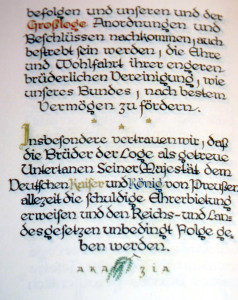 befolgen und unseren und der
Großloge Anordnungen und
Beschlüssen nachkommen, auch
bestrebt sein werden, die Ehre
und Wohlfahrt ihrer engeren
brüderlichen Vereinigung, wie
unseres Bundes, nach bestem
Vermögen zu fördern.
Insbesondere vertrauen wir, daß
die Brüder der Loge als getreue
Untertanen Seiner Majestät dem
Deutschen Kaiser und König von Preußen
allezeit die schuldige Ehrerbietung
erweisen und den Reichs- und Lan-
desgesetzen unbedingt Folge ge-
ben werden.
AKAZIA